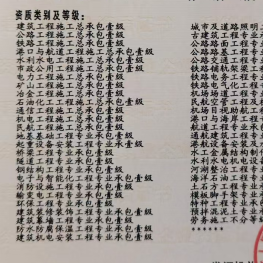 资质类别及等级:
建筑工程施工总承包壹级
公路工程施工总承包壹级
铁路工程施工总承包壹级
港口与航道工程施工总承包壹级
水利水电工程施工总承包壹级
市政公用工程施工总承包壹级
电力工程施工总承包壹级
矿山工程施工总承包壹级
冶金工程施工总承包壹级
石油化工工程施工总承包壹级
通信工程施工总承包壹级
机电工程施工总承包壹级
民航工程施工总承包壹级
地基基础工程专业承包壹级
起重设备安装工程专业承包壹级
桥梁工程专业承包壹级
隧道工程专业承包壹级
钢结构工程专业承包壹级
电子与智能化工程专业承包壹级
消防设施工程专业承包壹级
输变电工程专业承包壹级
环保工程专业承包壹级
建筑装修装饰工程专业承包壹级
建筑幕墙工程专业承包壹级
防水防腐保温工程专业承包壹级
建筑机电安装工程专业承包壹级
城市及道路照明
古建筑工程专业
公路路面工程专
公路路基工程专
公路交通工程
铁路
铁路铺轨架梁
铁路
机场场道工程
民航空管工程及
机场目视助航
港口与海岸工程
航道工程专业
通航建筑物工程
港航设备安装
水工金属结构
水利水电机电设
河湖整治工程
海洋石油工程
土石方工程专业
模板脚手架专业
特种工程专业
预拌混凝土专业
劳务施工不分等